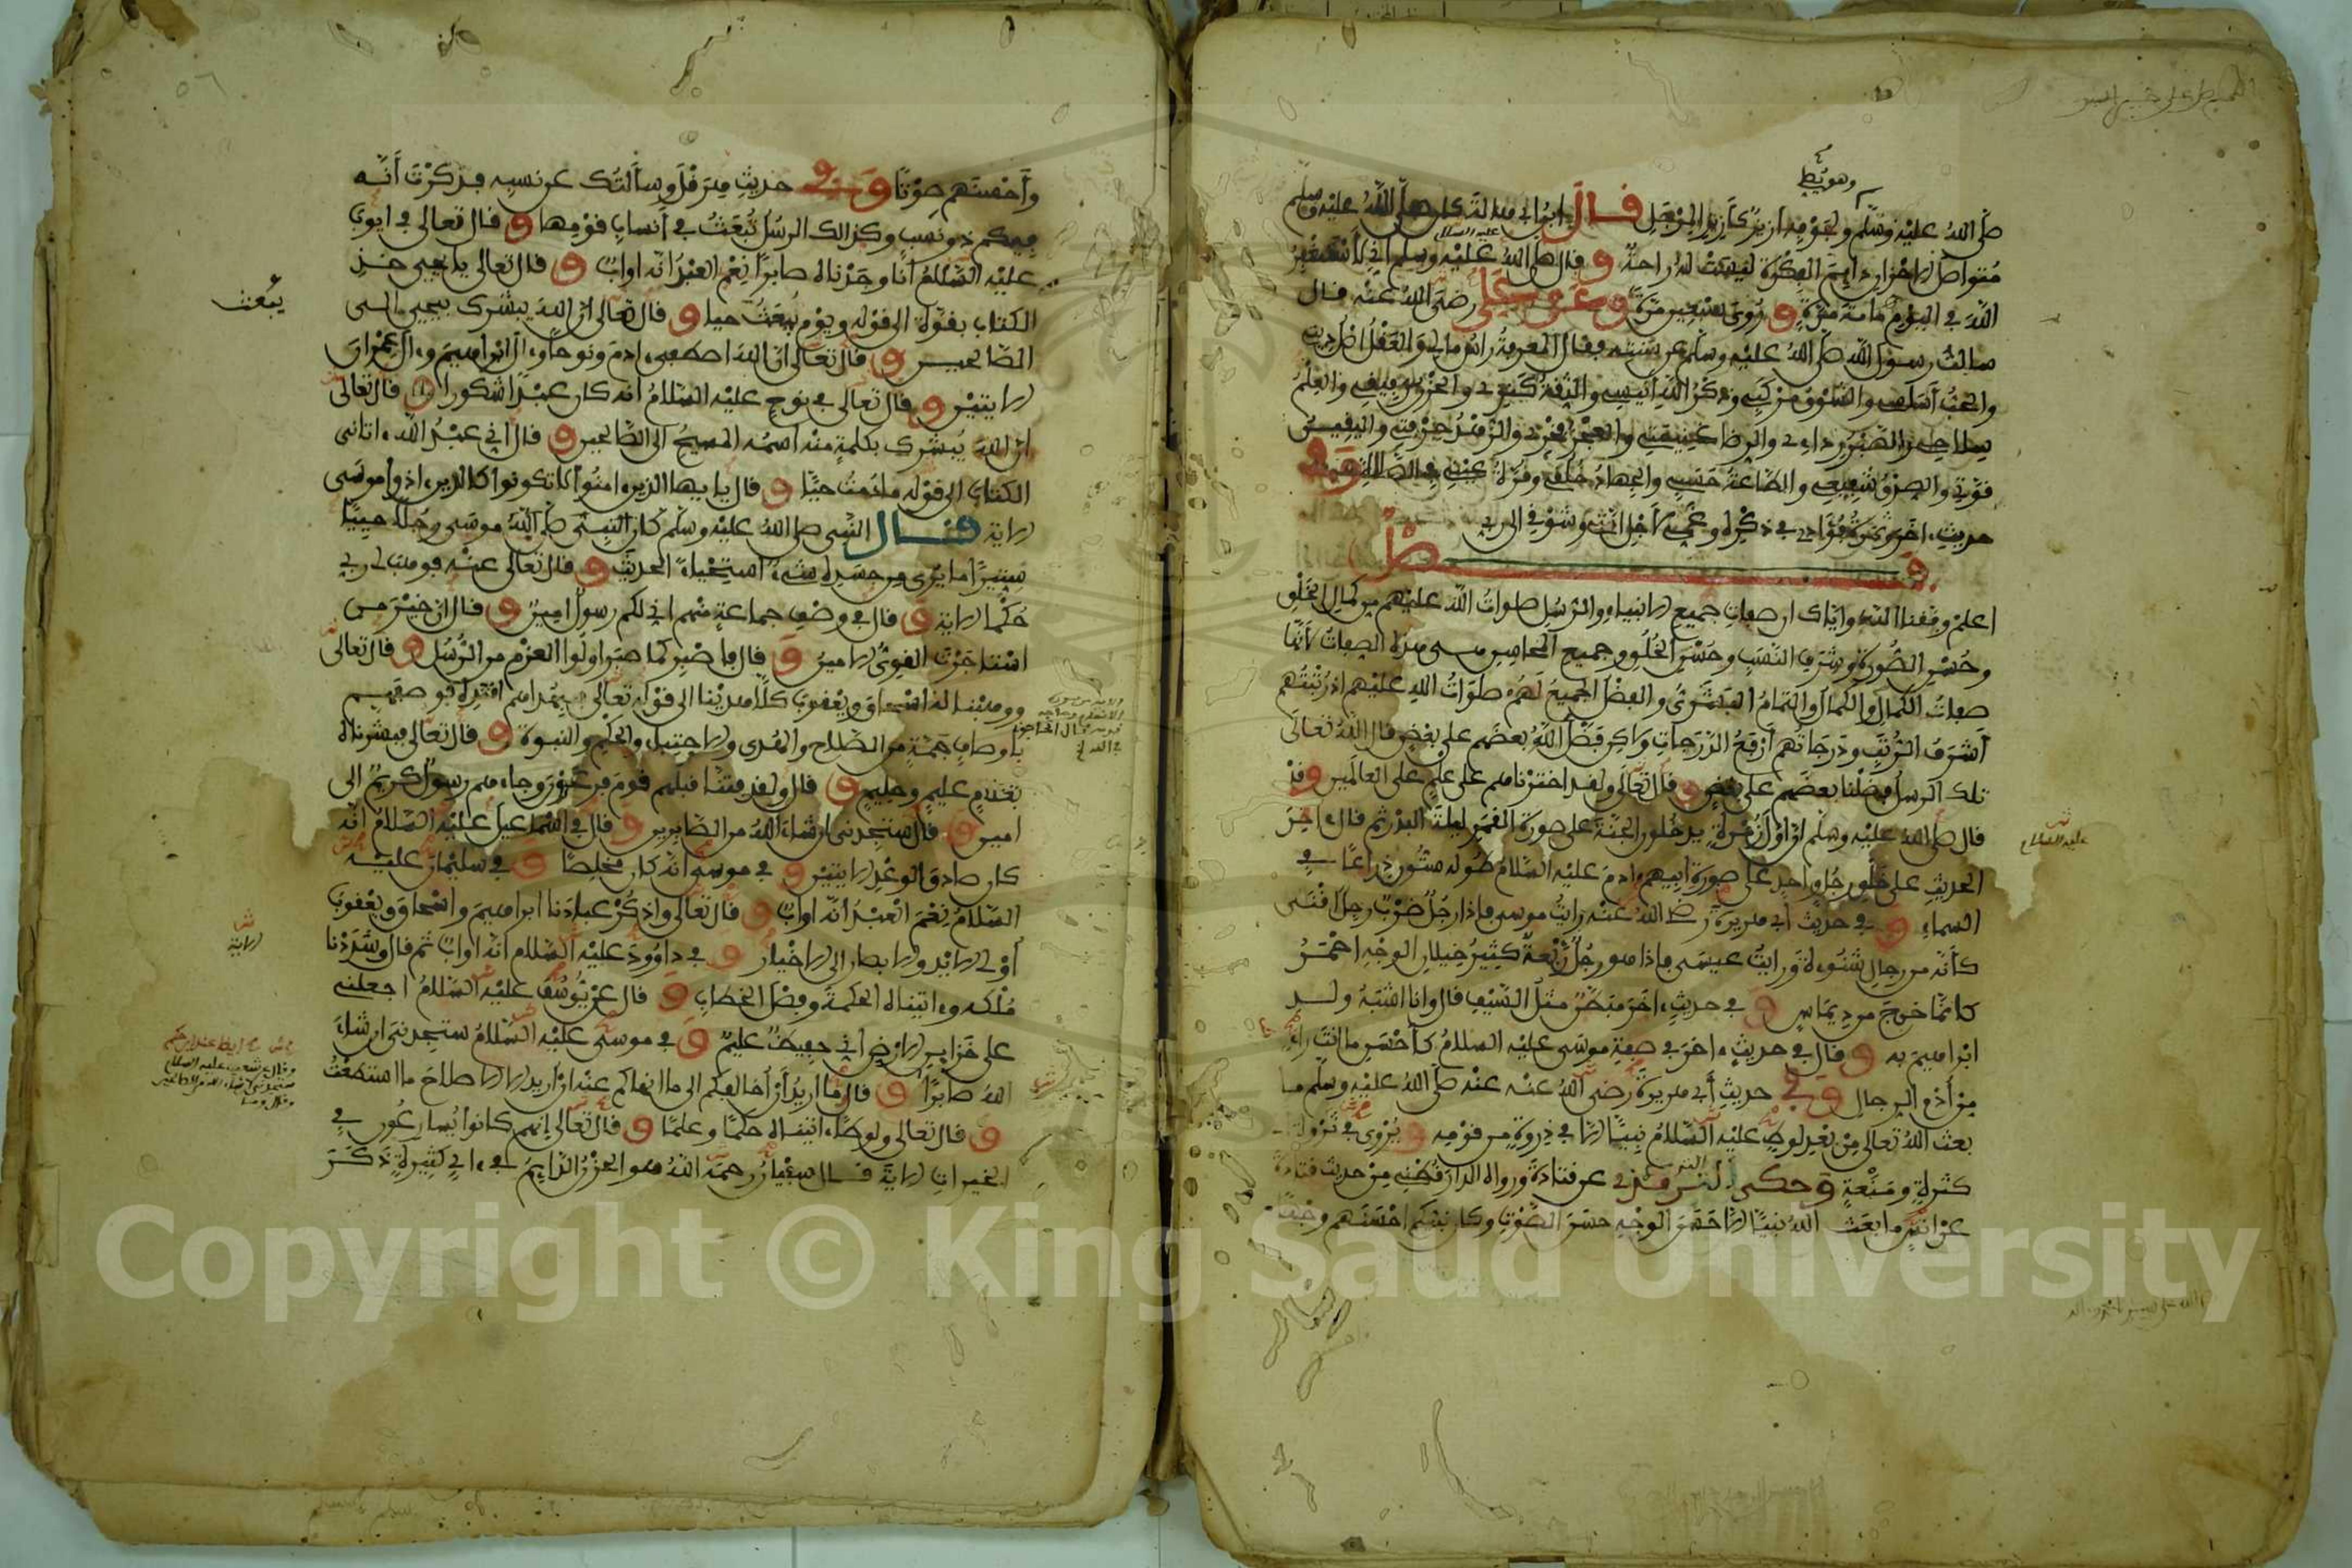 وهو يئط
صلى الله عليه وسلم ولجوفه ازيز كازيز المرجل قال ابن ابي هالة كان صلى الله عليه وسلم
متواصل الاحزان دايم الفكرة ليست له راحة و قال صلى الله عليه وسلم اني لاستغفر
عليه السلام
الله في اليوم ماية مرة و روي سبعين مرة وعن علي رضي الله عنه قال
سالت رسول الله صلى الله عليه وسلم عن سنته فقال المعرفة راس مالي والعقل اصل ديني
والحب اساسي والشوق مركبي وذكر الله انيسي والثقة كنزي والحزن رفيقي والعلم
سلاحي والصبر ردايي والرضا غنيمتي والعجز فخري والزهد حرفتي واليقين
قوتي والصدق شفيعي والطاعة حسبي والجهاد خلقي وقرة عيني في الصلاة وفي
حديث اخر وثمرة فؤادي في ذكره وغمي لاجل امتي وشوقي الى ربي
فصل
اعلم وفقنا الله واياك ان صفات جميع الانبياء والرسل صلوات الله عليهم من كمال الخلق
وحسن الصورة وشرف النسب وحسن الخلق وجميع المحاسن هي هذه الصفات لانها
صفات الكمال والكمال والتمام البشري والفضل الجميع لهم صلوات الله عليهم اذ رتبتهم
اشرف الرتب ودرجاتهم ارفع الدرجات ولاكن فضل الله بعضهم على بعض قال الله تعالى
تلك الرسل فضلنا بعضهم على بعض و قال تعالى ولقد اخترناهم على علم على العالمين وقد
قال صلى الله عليه وسلم ان اول زمرة يدخلون الجنة على صورة القمر ليلة البدر ثم قال ءاخر
عليه السلام
الحديث على خلق رجل واحد على صورة ابيهم ءادم عليه السلام طوله ستون ذراعا في
السماء و في حديث ابي هريرة رضي الله عنه رايت موسى فاذا رجل ضرب رجل اقنى
كانه من رجال شنوءة ورايت عيسى فاذا هو رجل ربعة كثير خيلان الوجه احمر
كانما خرج من ديماس و في حديث ءاخر مبطن مثل السيف قال وانا اشبه ولد
ابراهيم به و قال في حديث ءاخر في صفة موسى عليه السلام كاحسن ما انت راء
من ادم الرجال و في حديث ابي هريرة رضي الله عنه عنه صلى الله عليه وسلم ما
بعث الله تعالى من بعد لوط عليه السلام نبيا الا في ذروة من قومه و يروى في ثروة
كثرة ومنعة وحكى الترمذي عن قتادة ورواه الدارقطني من حديث قتادة
عن انس ما بعث الله نبيا الا حسن الوجه حسن الصوت وكان نبيكم احسنهم وجها
واحسنهم صوتا وفي حديث هرقل وسالتك عن نسبه فذكرت انه
فيكم ذو نسب وكذالك الرسل تبعث في انساب قومها و قال تعالى في ايوب
عليه السلام انا وجدناه صابرا نعم العبد انه اواب و قال تعالى يا يحيى خذ
الكتاب بقوة الى قوله ويوم يبعث حيا و قال تعالى ان الله يبشرك بيحيى الى
يبعث
الصالحين و قال تعالى ان الله اصطفى ءادم ونوحا وءال ابراهيم وءال عمران
الايتين و قال تعالى في نوح عليه السلام انه كان عبدا شكورا و قال تعالى
ان الله يبشرك بكلمة منه اسمه المسيح الى الصالحين و قال اني عبد الله ءاتاني
الكتاب الى قوله ما دمت حيا و قال يا ايها الذين ءامنوا لا تكونوا كالذين ءاذوا موسى
الاية قال النبي صلى الله عليه وسلم كان النبي صلى الله موسى رجلا حييا
ستيرا ما يرى من جسده شيء استحياء الحديث و قال تعالى عنه فوهب لي ربي
حكما الاية و قال في وصف جماعة منهم اني لكم رسول امين و قال ان خير من
استاجرت القوي الامين و قال فاصبر كما صبر اولوا العزم من الرسل و قال تعالى
ووهبنا له اسحاق ويعقوب كلا هدينا الى قوله تعالى فبهداهم اقتده فوصفهم
باوصاف جمة من الصلاح والهدى والاجتباء والحكم والنبوة و قال تعالى فبشرناه
بغلام عليم وحليم و قال ولقد فتنا قبلهم قوم فرعون وجاءهم رسول كريم الى
امين و قال ستجدني ان شاء الله من الصابرين و قال في اسماعيل عليه السلام انه
كان صادق الوعد الايتين و في موسى انه كان مخلصا و في سليمان عليه
السلام نعم العبد انه اواب و قال تعالى واذكر عبادنا ابراهيم واسحاق ويعقوب
اولي الايد والابصار الى الاخيار و في داوود عليه السلام انه اواب ثم قال وشددنا
الاية
ملكه وءاتيناه الحكمة وفصل الخطاب و قال عن يوسف عليه السلام اجعلني
على خزاين الارض اني حفيظ عليم و في موسى عليه السلام ستجدني ان شاء
الله صابرا و قال ما اريد ان اخالفكم الى ما انهاكم عنه ان اريد الا الاصلاح ما استطعت
و قال تعالى ولوطا ءاتيناه حكما وعلما و قال تعالى انهم كانوا يسارعون في
الخيرات الاية قال سفيان رحمه الله هو الحزن الدايم في ءاي كثيرة ذكر
Copyright © King Saud University